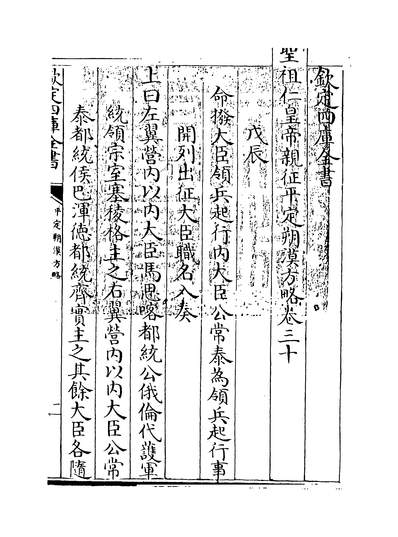 欽定四庫全書
聖祖仁皇帝親征平定朔漠方略卷三十
戊辰
命撥大臣領兵起行內大臣公常泰為領兵起行事
開列出征大臣職名入奏
上曰左翼營內以內大臣馬思喀都統公俄倫代護軍
統領宗室塞稜格主之右翼營內以內大臣公常
泰都統侯巴渾德都統齊實主之其餘大臣各隨
欽定四庫全書
平定朔漠方略